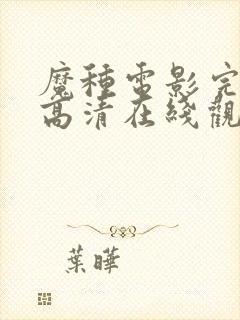 魔種電影完
高清在綫觀
葉曄